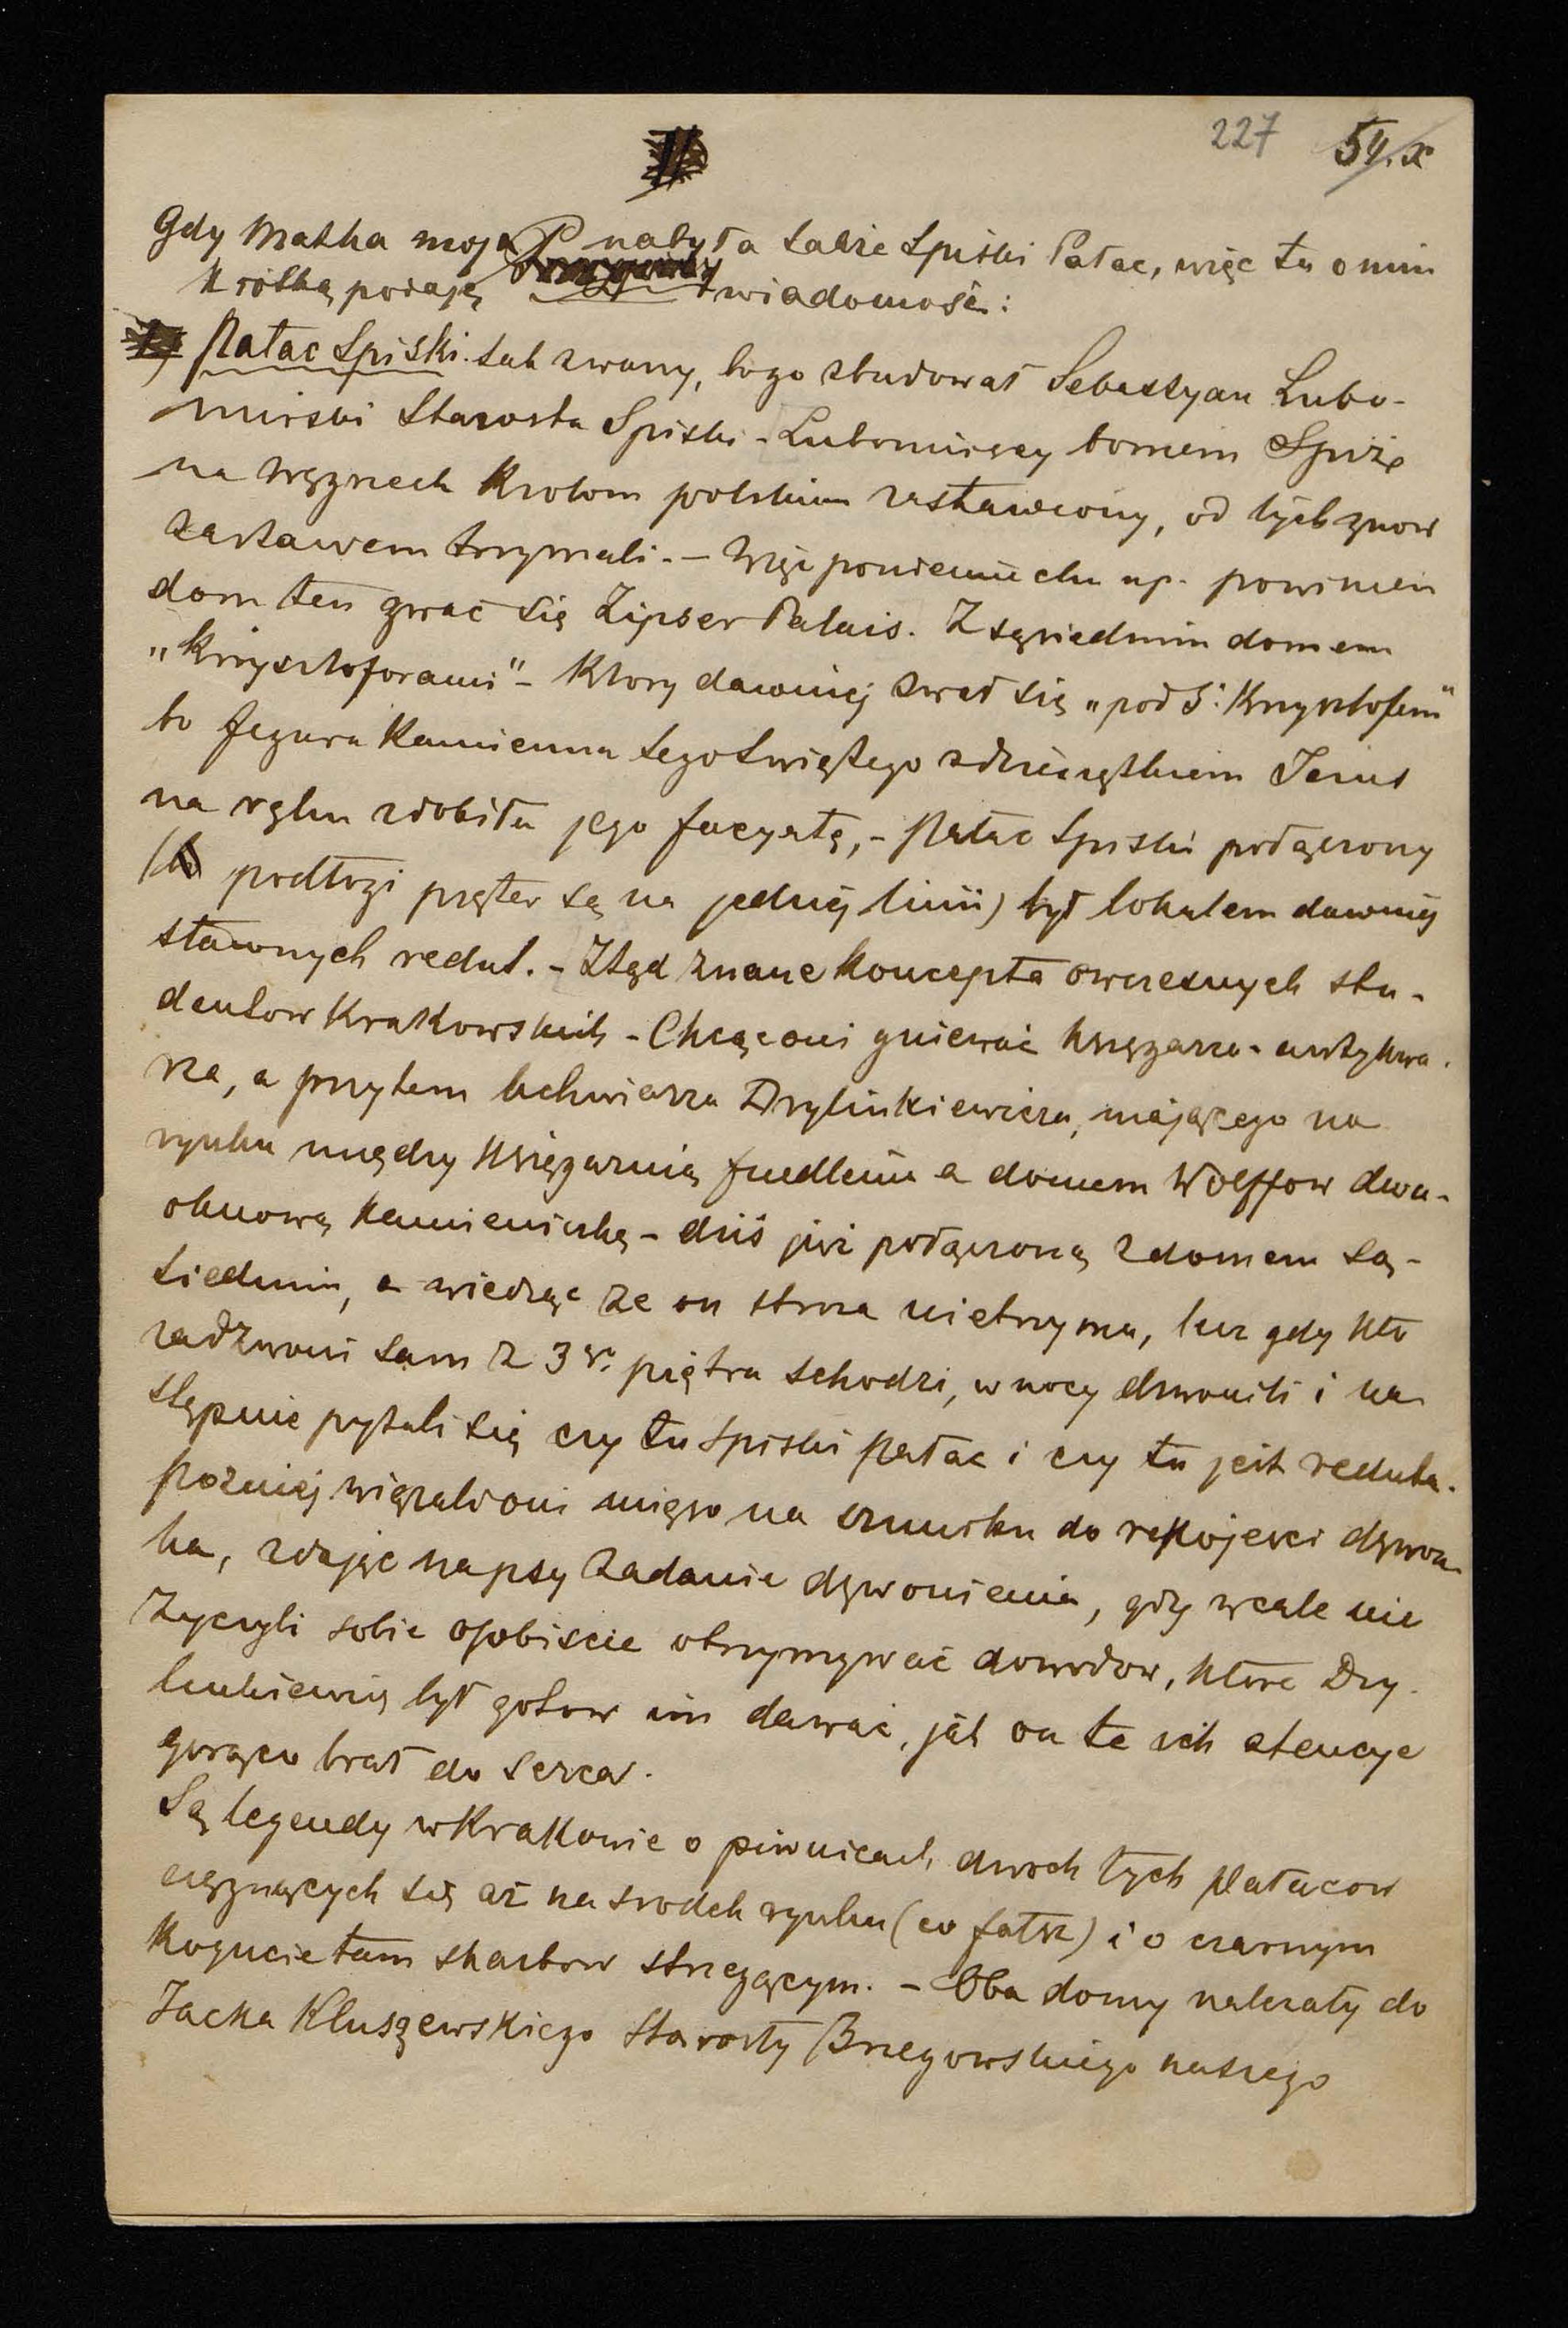 227 54.x
Gdy Matka moja nabyła także Spiski Pałac, więc tu o nim
krótką podaję wiadomość:
Pałac Spiski tak zwany, bo go zbudował Sebastyan Lubo-
mirski Starosta Spiski - Lubomirscy bowiem Spiż
na Węgrzech Krolom polskim zastawiony, od tych znow
zastawem trzymali. - Więc po niemiecku np. powinien
dom ten zwać się Zipser Palais. Z sąsiednim domem
"Krzysztoforami" - Ktory dawniej zwał się "pod Ś: Krzysztofem"
bo figura Kamienna tego Swiętego z dzieciątkiem Jezus
na ręku zdobiła jego facyatę, - Pałac Spiski połączony
( podłogi pięter są na jednéj linii) był lokalem dawniej
sławnych redut. - Ztąd znane koncepta owczesnych stu-
dentow Krakowskich - Chcąc oni gniewać księgarza-antykwa-
rza, a przytem lichwiarza Drylinkiewicza, mającego na
rynku między Księgarnią Friedlein a domem Wolffow dwu-
oknową Kamieniczkę - dziś już połączoną z domem są-
siednim, a wiedząc ze on stroza nie trzyma, lecz gdy kto
zadzwoni sam z 3go piętra schodzi, w nocy dzwonili i na-
stępnie pytali się czy tu Spiski Pałac i czy tu jest reduta.
Pozniej wiązali oni mięso na sznurku do rękojesci dzwon-
ka, zdając na psy zadanie dzwonienia, gdy wcale nie
zyczyli sobie osobiscie otrzymywać dowodow, które Dry-
linkiewicz był gotow im dawać, jak on te ich atencye
gorąco brał do serca.
Są legendy w Krakowie o piwnicach dwoch tych Pałacow
ciągnących się aż na srodek rynku (co fałsz) i o czarnym
Kogucie tam skarbow strzegącym. - Oba domy nalezały do
Jacka Kluszewskiego Starosty Brzegowskiego naszego